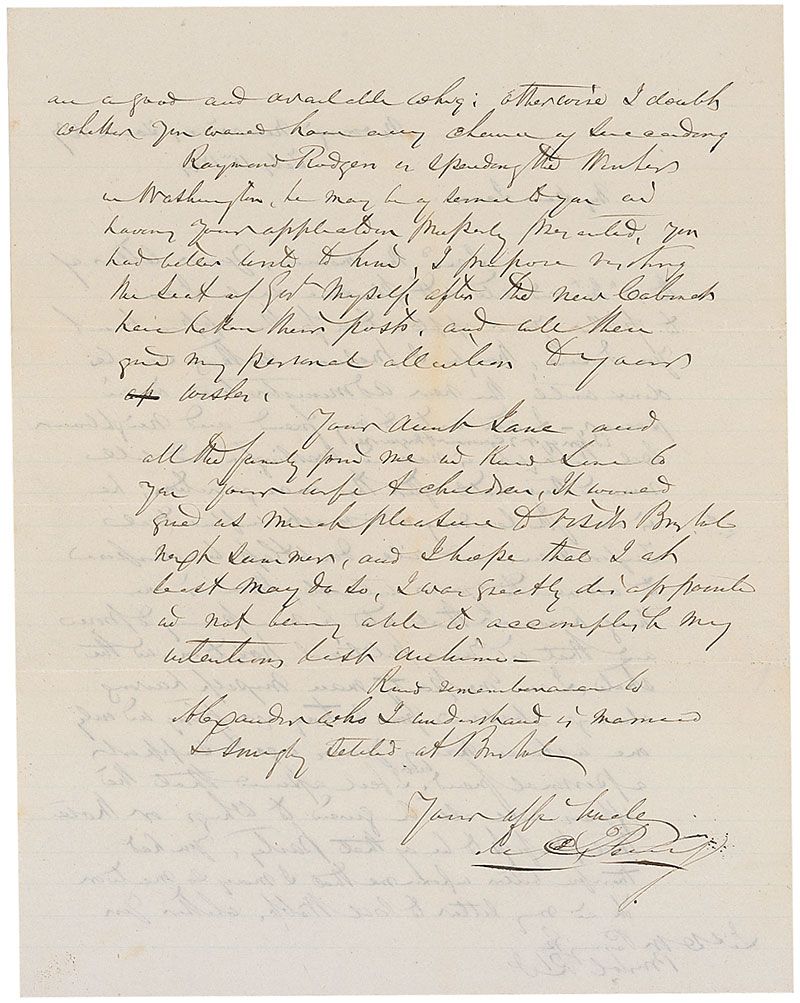 are a good and available whig; otherwise I doubt
whether you would have any chance of succeeding
Raymond Rodgers is spending the Winter
in Washington, he may be of service to you in
having your application properly presented, you
had better write to him, I propose visiting
the Seat of Govt myself, after the new Cabinet
have taken their posts, and will then
give my personal attention to your
wishes.
Your Aunt Jane and
all the family join me in kind Love to
you your wife & children, It would
give us much pleasure to visit Bristol
next summer, and I hope that I at
least may do so, I was greatly disappointed
in not being able to accomplish my
intentions last autumn —
Kind remembrances to
Alexander who I understand is married
& snugly settled at Bristol
Your affe Uncle
M C Perry